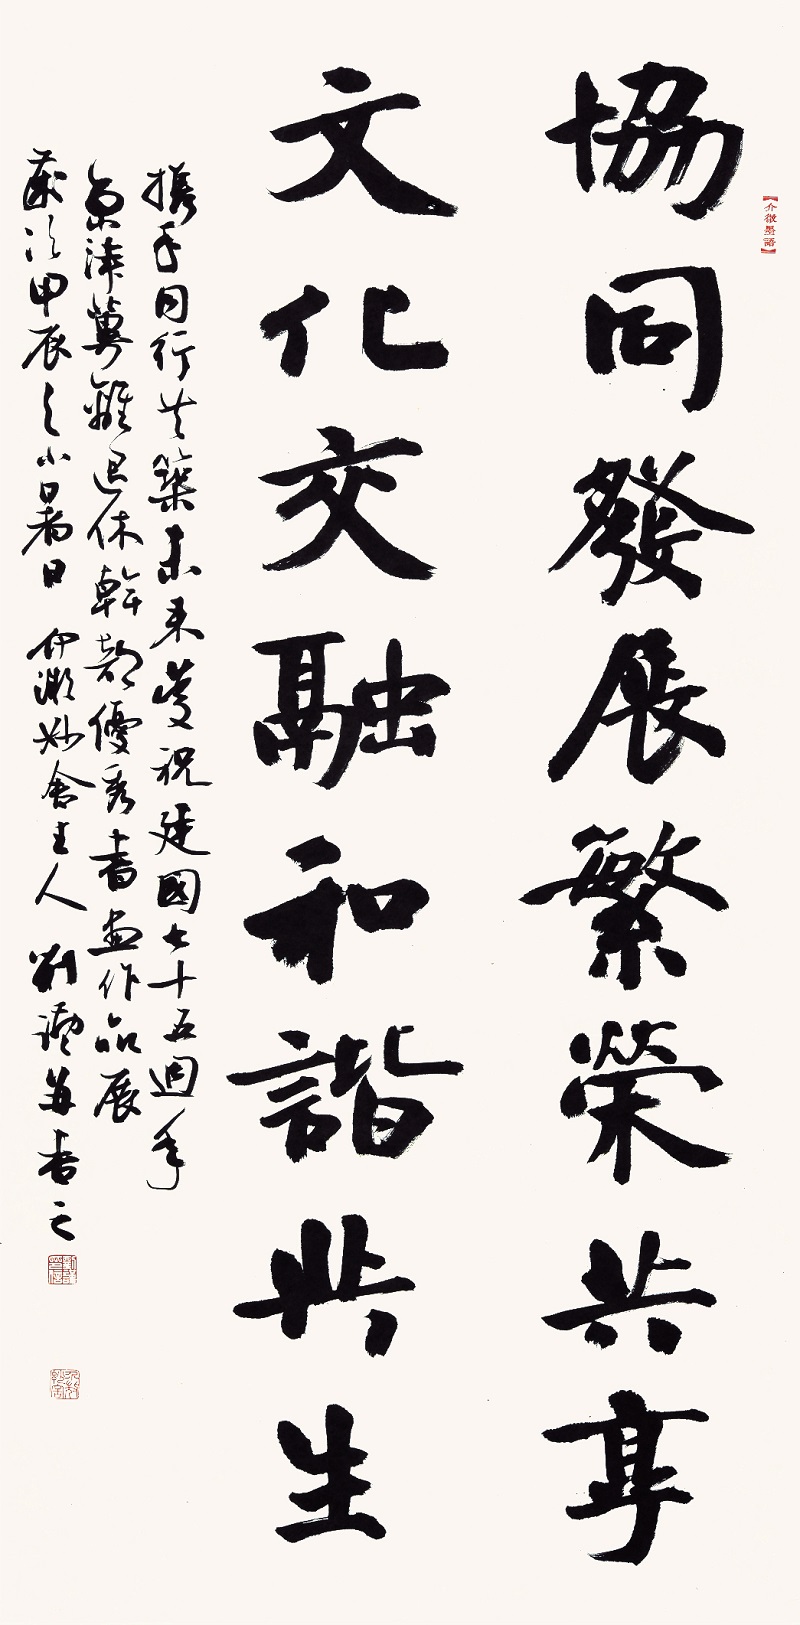 協同發展繁榮共享
【介微墨語】
文化交融和諧共生
攜手同行共築未來慶祝建國七十五週年
京津冀離退休幹部優秀書畫作品展
歲次甲辰之小暑日 妙舍主人 劉 書之